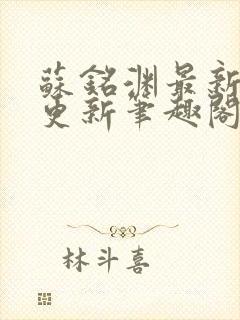 蘇銘淵最新
更新筆趣閣
林斗喜